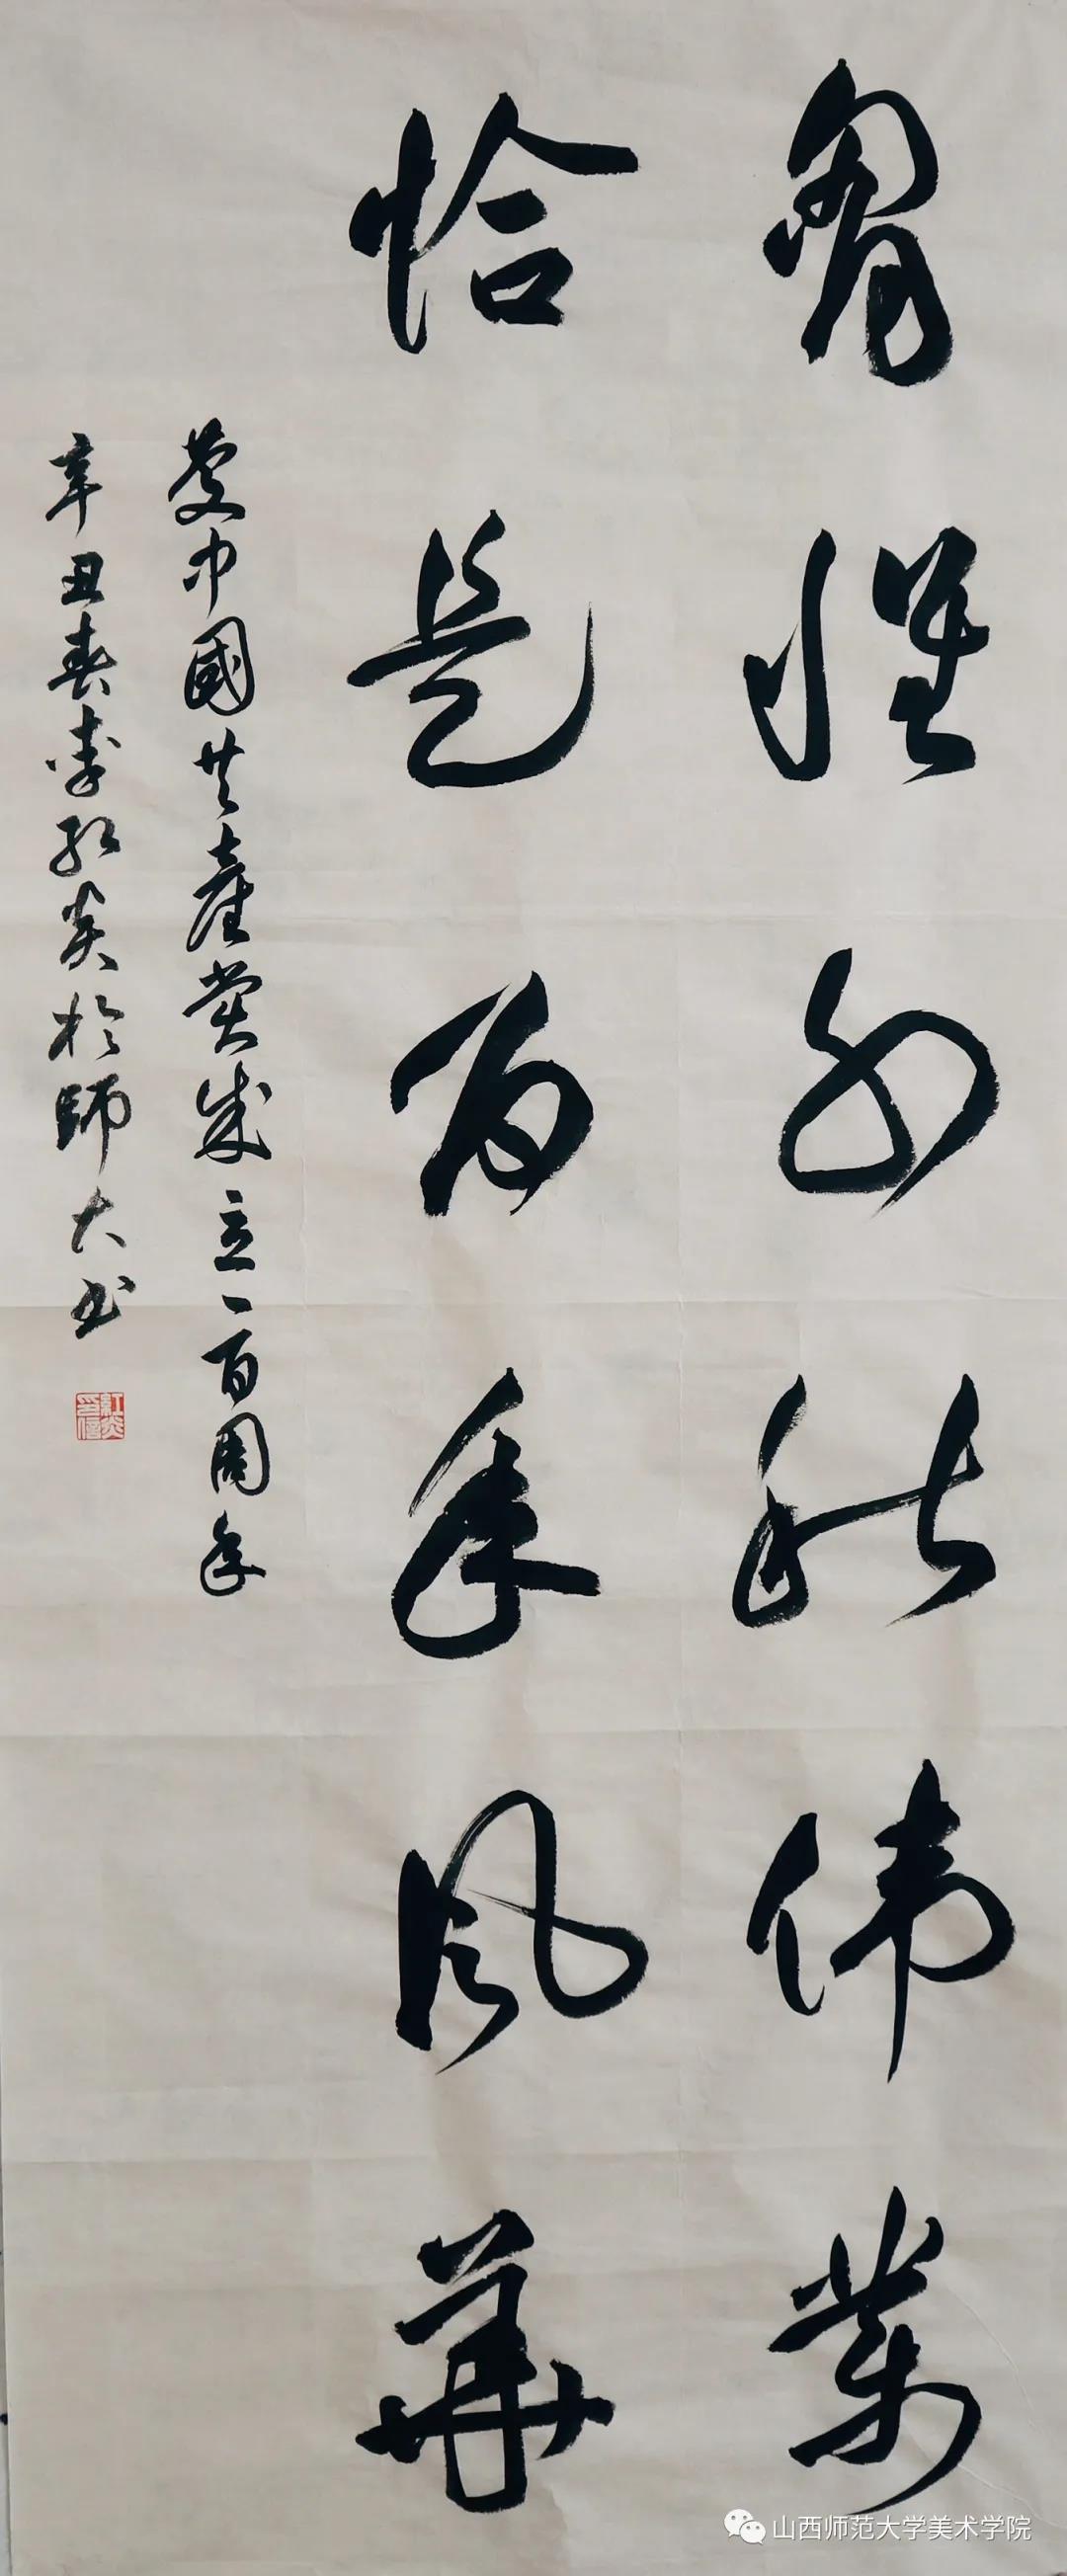 胷懷千秋伟業
恰是百年风華
慶中國共產黨成立一百周年
辛丑春李红炎於師大书
紅炎印信
山西师范大学美术学院